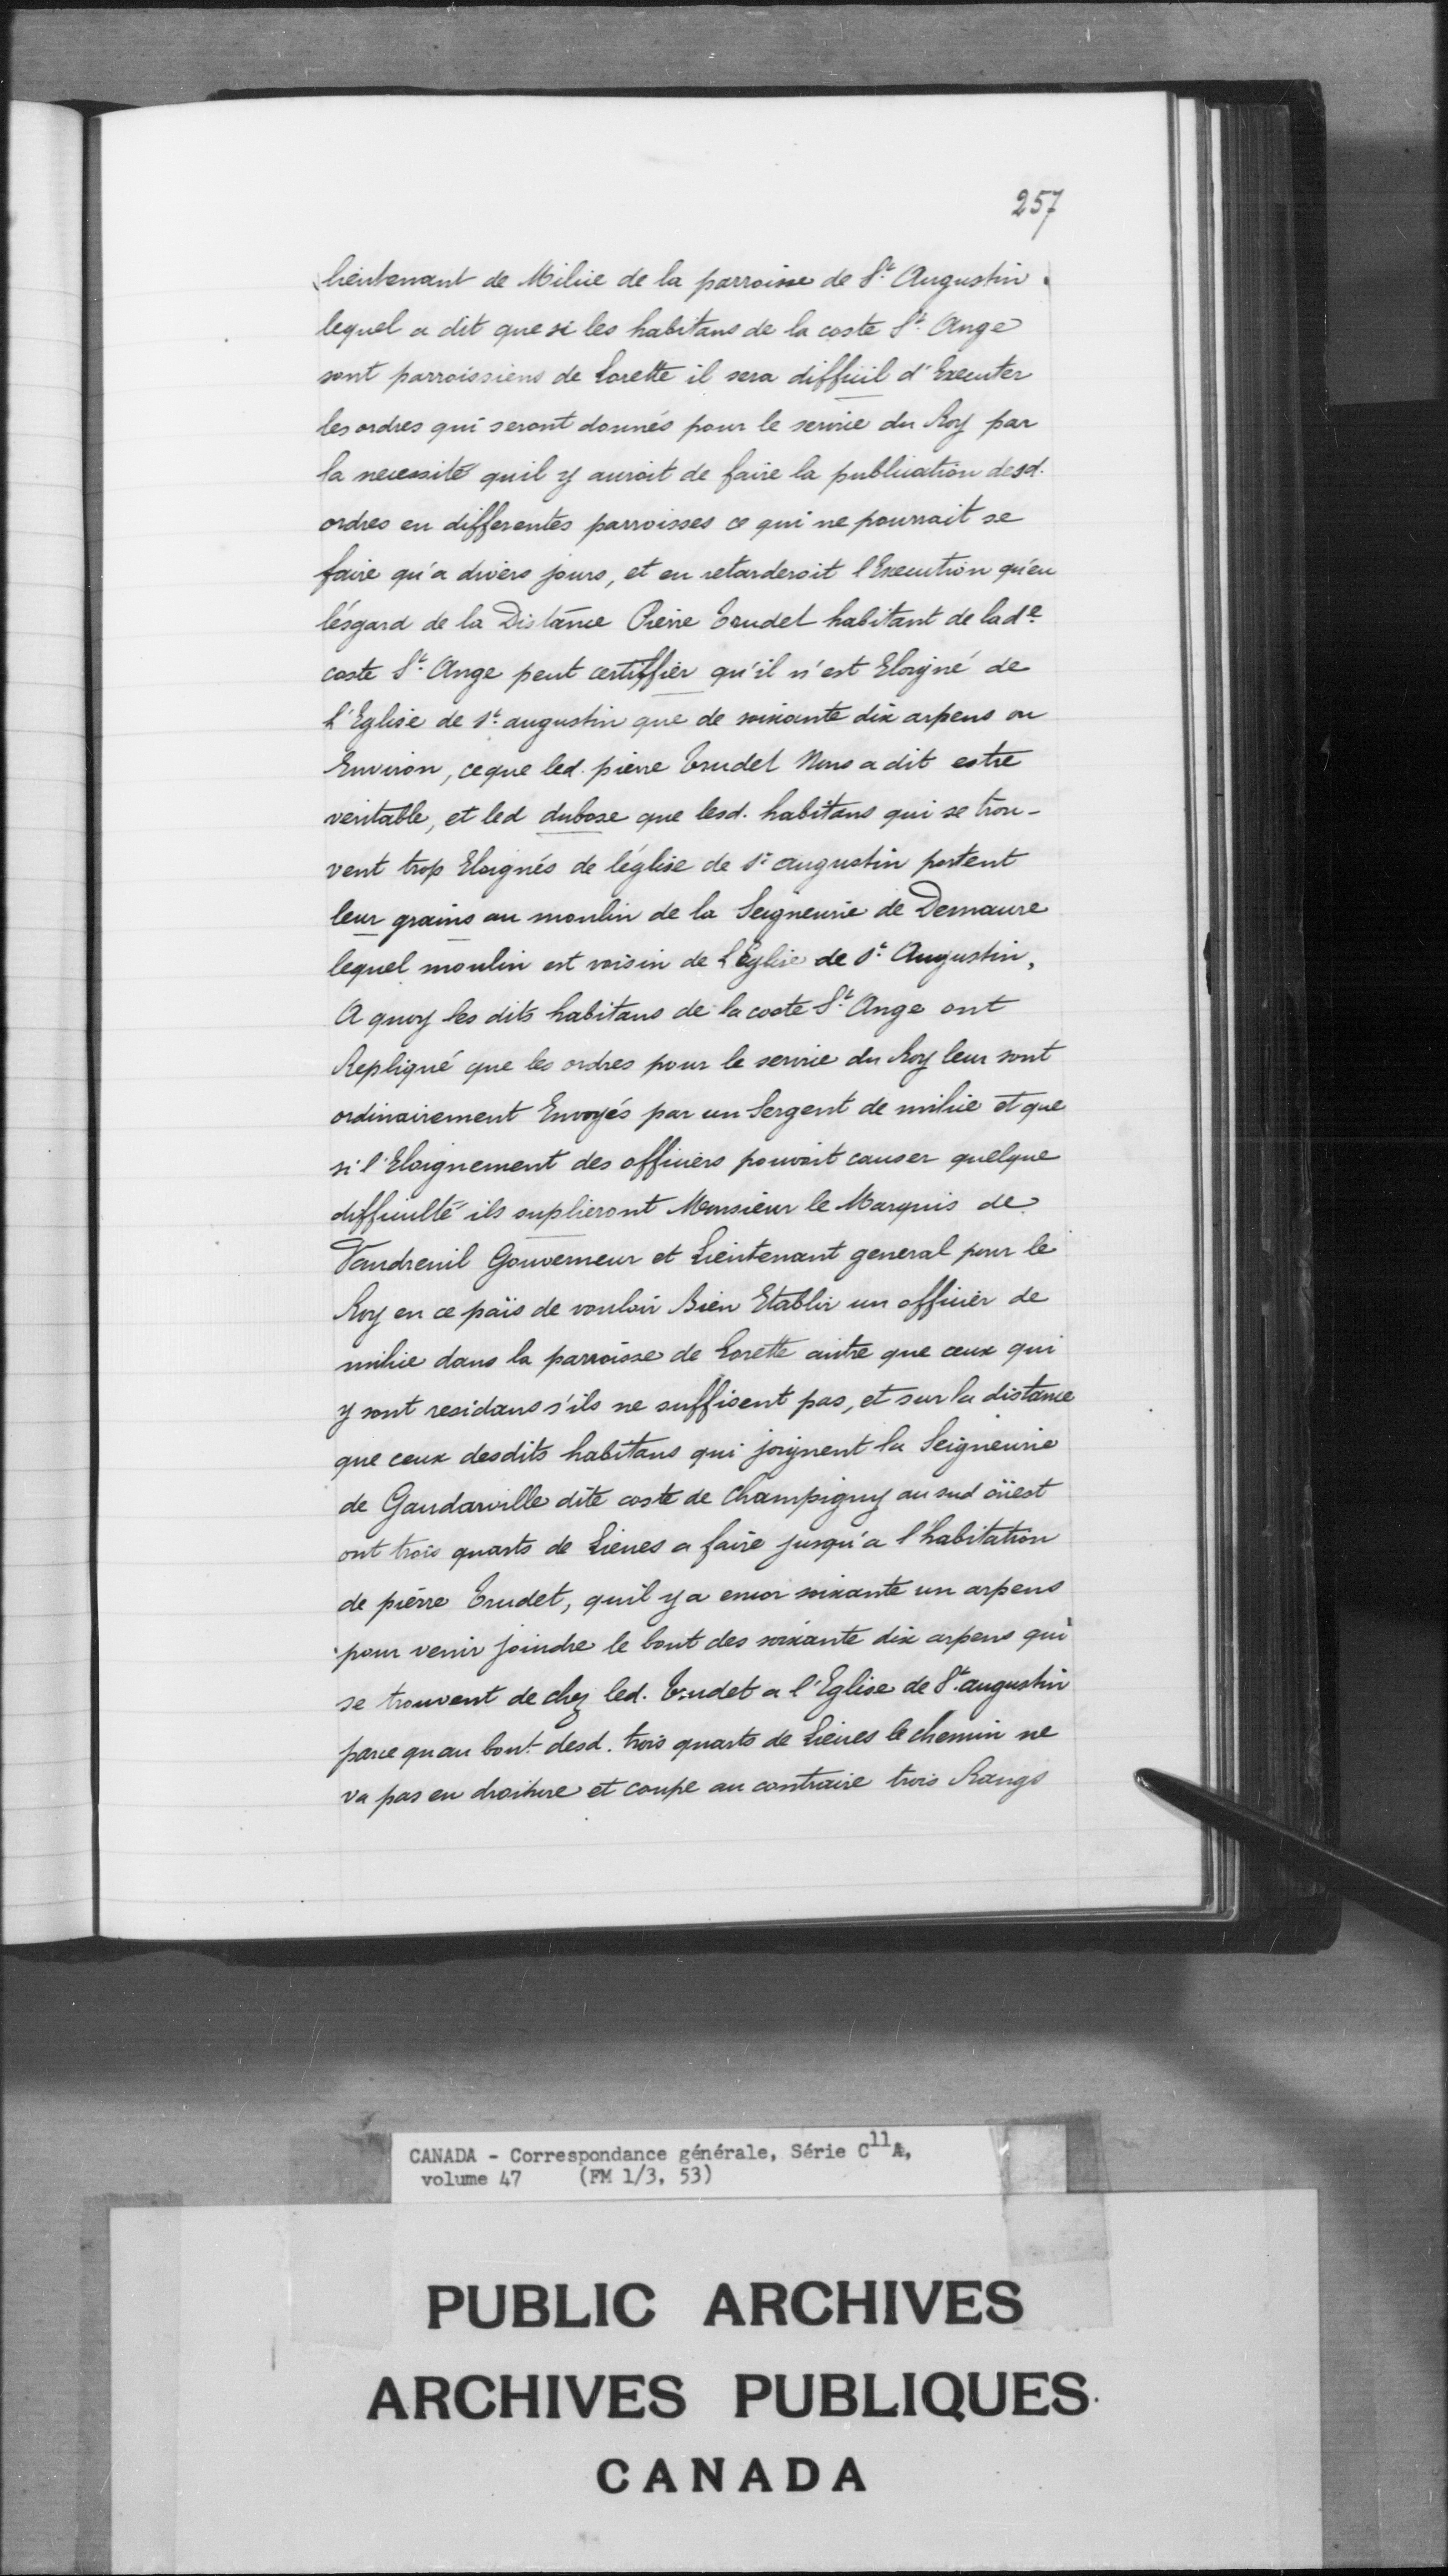 257
lieutenant de Milice de la parroisse de St. Augustin.
lequel a dit que si les habitans de la coste St. Ange
sont parroissiens de Lorette il sera difficil d'Executer
les ordres qui seront donnés pour le service du Roy par
la necessité quil y auroit de faire la publication desd.
ordres en differentes parroisses ce qui ne pourrait se
faire qu'a divers jours, et en retarderoit l'Execution qu'en
lésgard de la Distance Pierre Trudel habitant de lade.
coste St. Ange peut certiffier qu'il n'est Eloigné de
L'Eglise de st. augustin que de soixante dix arpens ou
Environ, ceque led. pierre Trudel Nous a dit estre
veritable, et led dubose que lesd. habitans qui se trou-
vent trop Eloignés de léglise de st. augustin portent
leur grains au moulin de la Seigneurie de Demaure
lequel moulin est voisin de L'Eglise de st. Augustin,
A quoy les dits habitans de la coste St. Ange ont
Repliqué que les ordres pour le service du Roy leur sont
ordinairement Envoyés par un Sergent de milice et que
si l'Eloignement des officiers pouvoit causer quelque
difficulté ils suplieront Monsieur le Marquis de
Vaudreuil Gouverneur et Lieutenant general pour le
Roy en ce païs de vouloir Bien Etablir un officier de
milice dans la parroisse de Lorette autre que ceux qui
y sont residans s'ils ne suffisent pas, et sur la distance
que ceux desdits habitans qui joignent la Seigneurie
de Gaudarville dite coste de Champigny au sud oüest
ont trois quarts de Lieues a faire jusqu'a l'habitation
de piérre Trudet, quil y a encor soixante un arpens
pour venir joindre le bout des soixante dix arpens qui
se trouvent de chez led. Trudet a l'Eglise de St. augustin
parce quau bout desd. trois quarts de Lieues le chemin ne
va pas en droiture et coupe au contraire trois Rangs
CANADA - Correspondance générale, Série C11A,
volume 47 (FM 1/3, 53)
PUBLIC ARCHIVES
ARCHIVES PUBLIQUES
CANADA